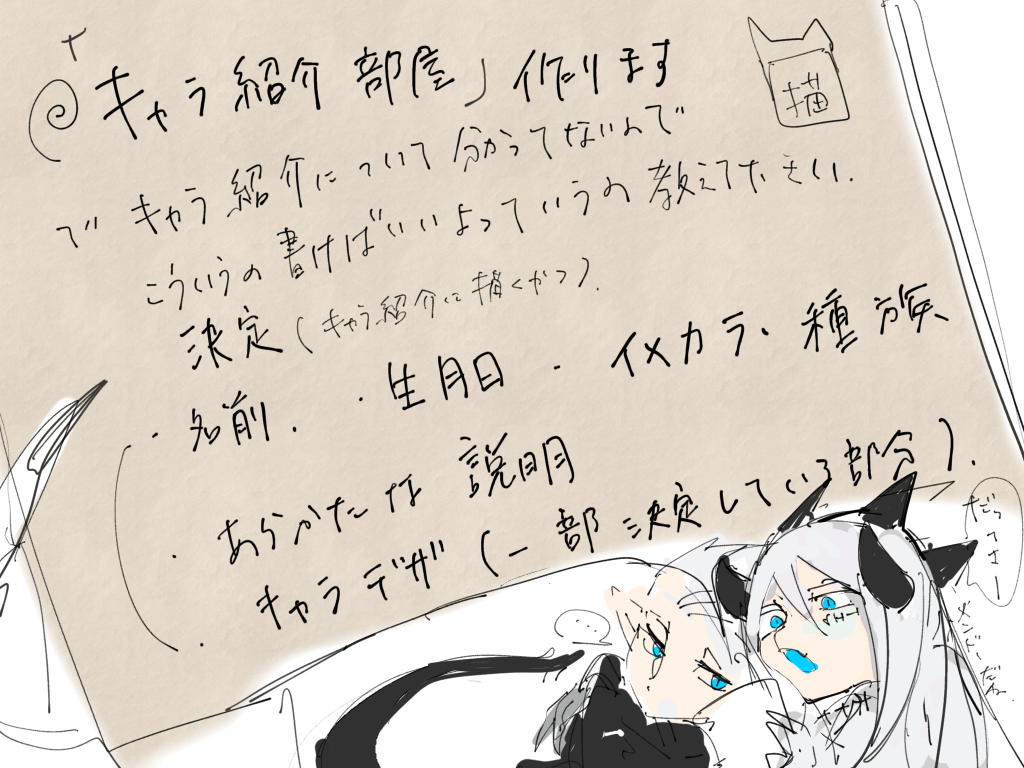 「キャラ紹介部屋」作ります
描
で キャラ紹介について 分かってないんで
こういうの書けばいいよっていうの教えてください.
決定(キャラ紹介に描くかつ).
・名前. ・生月日 ・イメカラ・種族
・あらかたな 説明
・キャラデザ(一部決定している部分).
だってさー
メンドだね
...